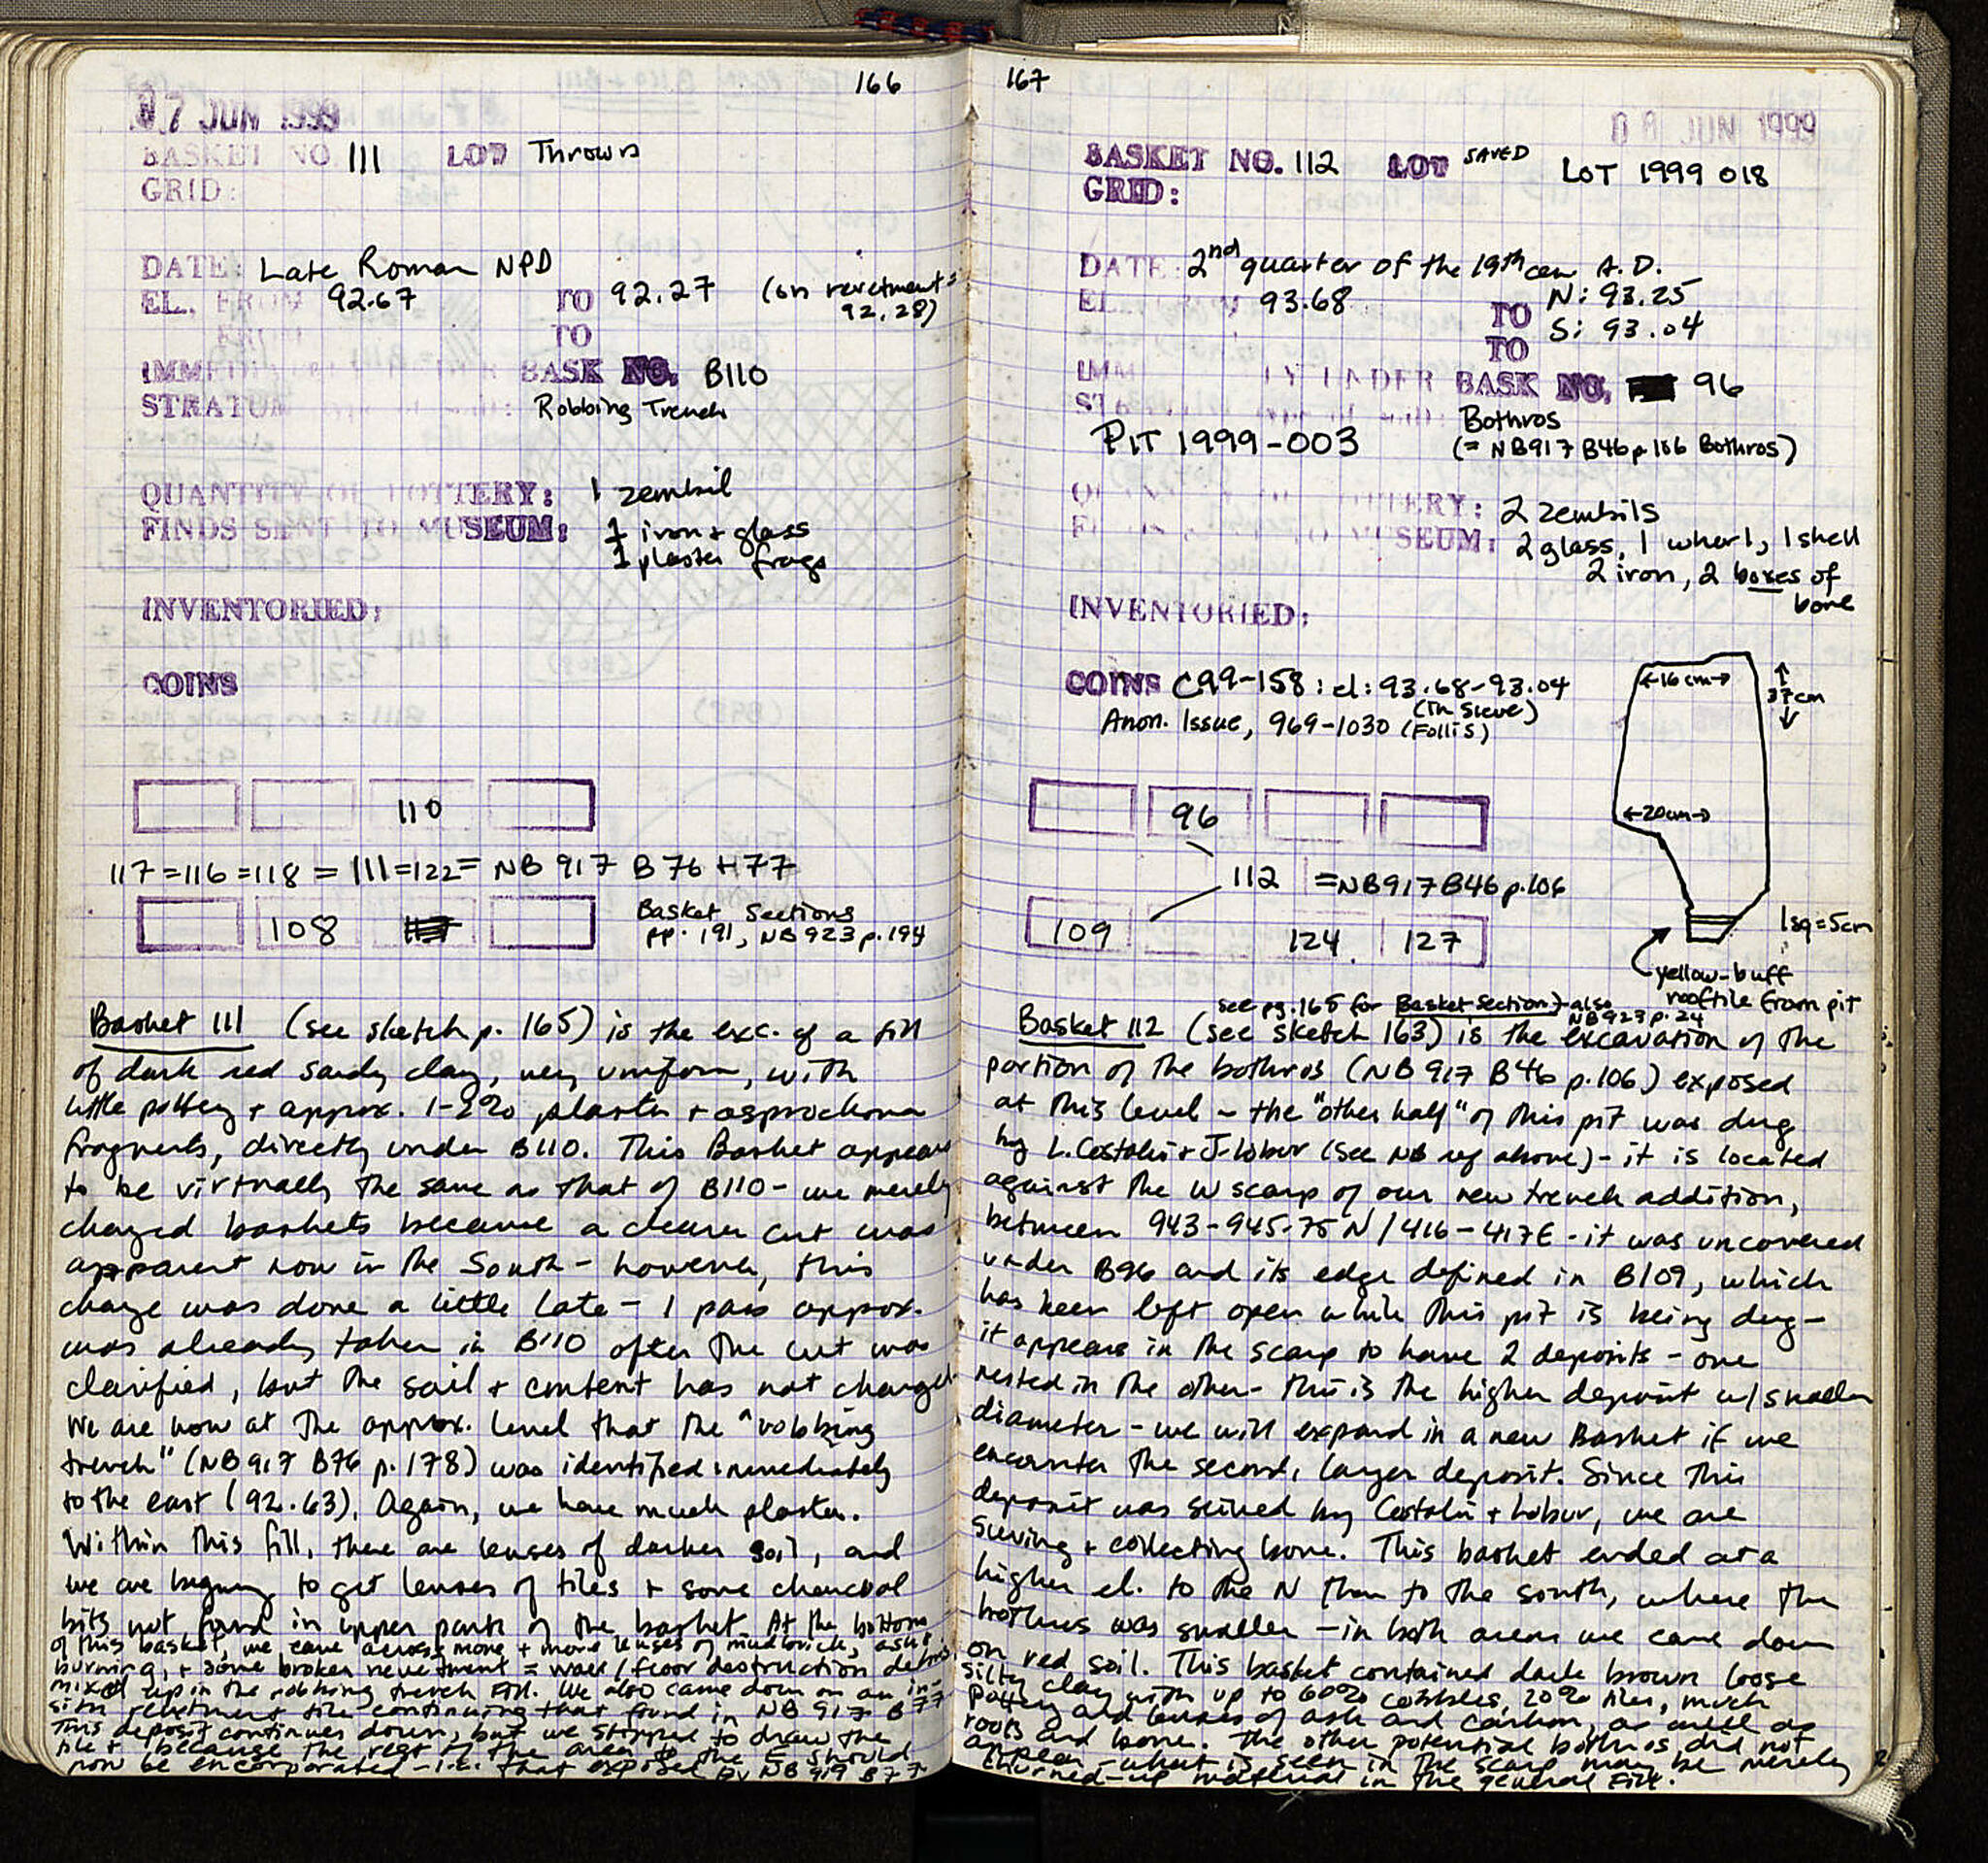 166
07 JUN 1999
BASKET NO. 111 LOT Thrown
GRID:
DATE: Late Roman NPD
EL. FROM 92.67 TO 92.27 (on revetment =
92.28)
FROM TO
IMMEDIATELY UNDER BASK NO. B110
STRATUM : Robbing Trench
QUANTITY OF POTTERY: 1 zembil
FINDS SENT TO MUSEUM: 1 iron + glass
1 plaster frags
INVENTORIED:
COINS
110
117=116=118=111=122= NB 917 B76+77
108
Basket Sections
pp. 191, NB 923 p. 194
Basket 111 (see sketch p. 165) is the exc. of a fill
of dark red sandy clay, very uniform, with
little pottery + approx. 1-2% plaster + asprochoma
fragments, directly under B110. This Basket appears
to be virtually the same as that of B110 - we merely
changed baskets because a clearer cut was
apparent now in the South - however, this
change was done a little late - 1 pass approx.
was already taken in B110 after the cut was
clarified, but the soil + content has not changed.
We are now at the approx. level that the "robbing
trench" (NB 917 B76 p. 178) was identified immediately
to the east (92.63). Again, we have much plaster.
Within this fill, there are lenses of darker soil, and
we are begining to get lenses of tiles + some charcoal
bits not found in upper parts of the basket. At the bottom
of this basket, we came across more + more lenses of mudbrick, ash +
burning, + some broken revetment = wall / floor destruction debris
mixed up in the robbing trench fill. We also came down on an in-
situ revetment tile continuing that found in NB 917 B77
This deposit continues down, but we stopped to draw the
tile + because the rest of the area to the E should
now be encorporated - i.e. that exposed by NB 919 B77
167
08 JUN 1999
BASKET NO. 112 LOT SAVED LOT 1999 018
GRID:
DATE 2nd quarter of the 19th cen A.D.
EL. 93.68 TO N: 93.25
TO S: 93.04
IMMEDIATELY UNDER BASK NO. 96
Bothros
PIT 1999-003 (= NB917 B46 p. 106 Bothros)
QUANTITY OF POTTERY: 2 zembils
FINDS SENT TO MUSEUM: 2 glass, 1 whorl, 1 shell
2 iron, 2 boxes of
bone
INVENTORIED:
COINS C99-158: el: 93.68-93.04
(In Sieve)
Anon. Issue, 969-1030 (Follis)
←16cm→
37cm
←20cm→
1sq=5cm
yellow-buff
rooftile from pit
96
112 =NB917 B46 p.106
109 124. 127
see pg. 165 for Basket Section - also
NB923 p. 24
Basket 112 (see sketch 163) is the excavation of the
portion of the bothros (NB 917 B46 p.106) exposed
at this level - the "other half" of this pit was dug
by L. Costaki + J. Lobur (see NB ref above) - it is located
against the W scarp of our new trench addition,
between 943-945.75 N / 416-417E - it was uncovered
under B96 and its edge defined in B109, which
has been left open while this pit is being dug -
it appears in the scarp to have 2 deposits - one
nested in the other - this is the higher deposit w/ smaller
diameter - we will expand in a new Basket if we
encounter the second, larger deposit. Since this
deposit was seived by Costaki + Lobur, we are
sieving + collecting bone. This basket ended at a
higher el. to the N than to the south, where the
bothros was smaller - in both areas we came down
on red soil. This basket contained dark brown loose
silty clay with up to 60% cobbles, 20% tiles, much
pottery and lenses of ash and carbon, as well as
roots and bone. The other potential bothros did not
appear - what is seen in the scarp may be merely
churned-up material in the general fill.